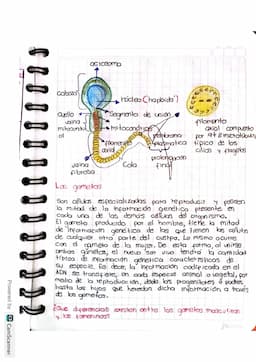 acrosoma
Cabeza
núcleo (haploide)
Cuello
segmento de unión
vaina
mitocondri
al
mitocondrias
filamento
axial
membrana
plasmática
vaina
fibrosa
Cola
prolongación
final
filamento
axial compuesto
por 9+2 microtúbulos
típico de los
cilios y flagelos
Los gametos
Son células especializadas para reproducir y poseen
la mitad de la información genética presente en
cada una de las demás células del organismo.
El gameto producido por el hombre, tiene la mitad
de información genética de las que tienen las células
de cualquier otra parte del cuerpo. Lo mismo ocurre
con el gameto de la mujer. De esta forma, al unirse
ambos gametos, el nuevo ser vivo tendrá la cantidad
típica de información genética característica de
su especie. Es decir, la información codificada en el
ADN se transfiere, en cada especie animal o vegetal, por
medio de la reproducción, desde los progenitores o padres
hasta los hijos que heredan dicha información a través
de los gametos.
¿Que diferencias existen entre los gametos masculinos
y los femeninos?
Powered by CamScanner
CS